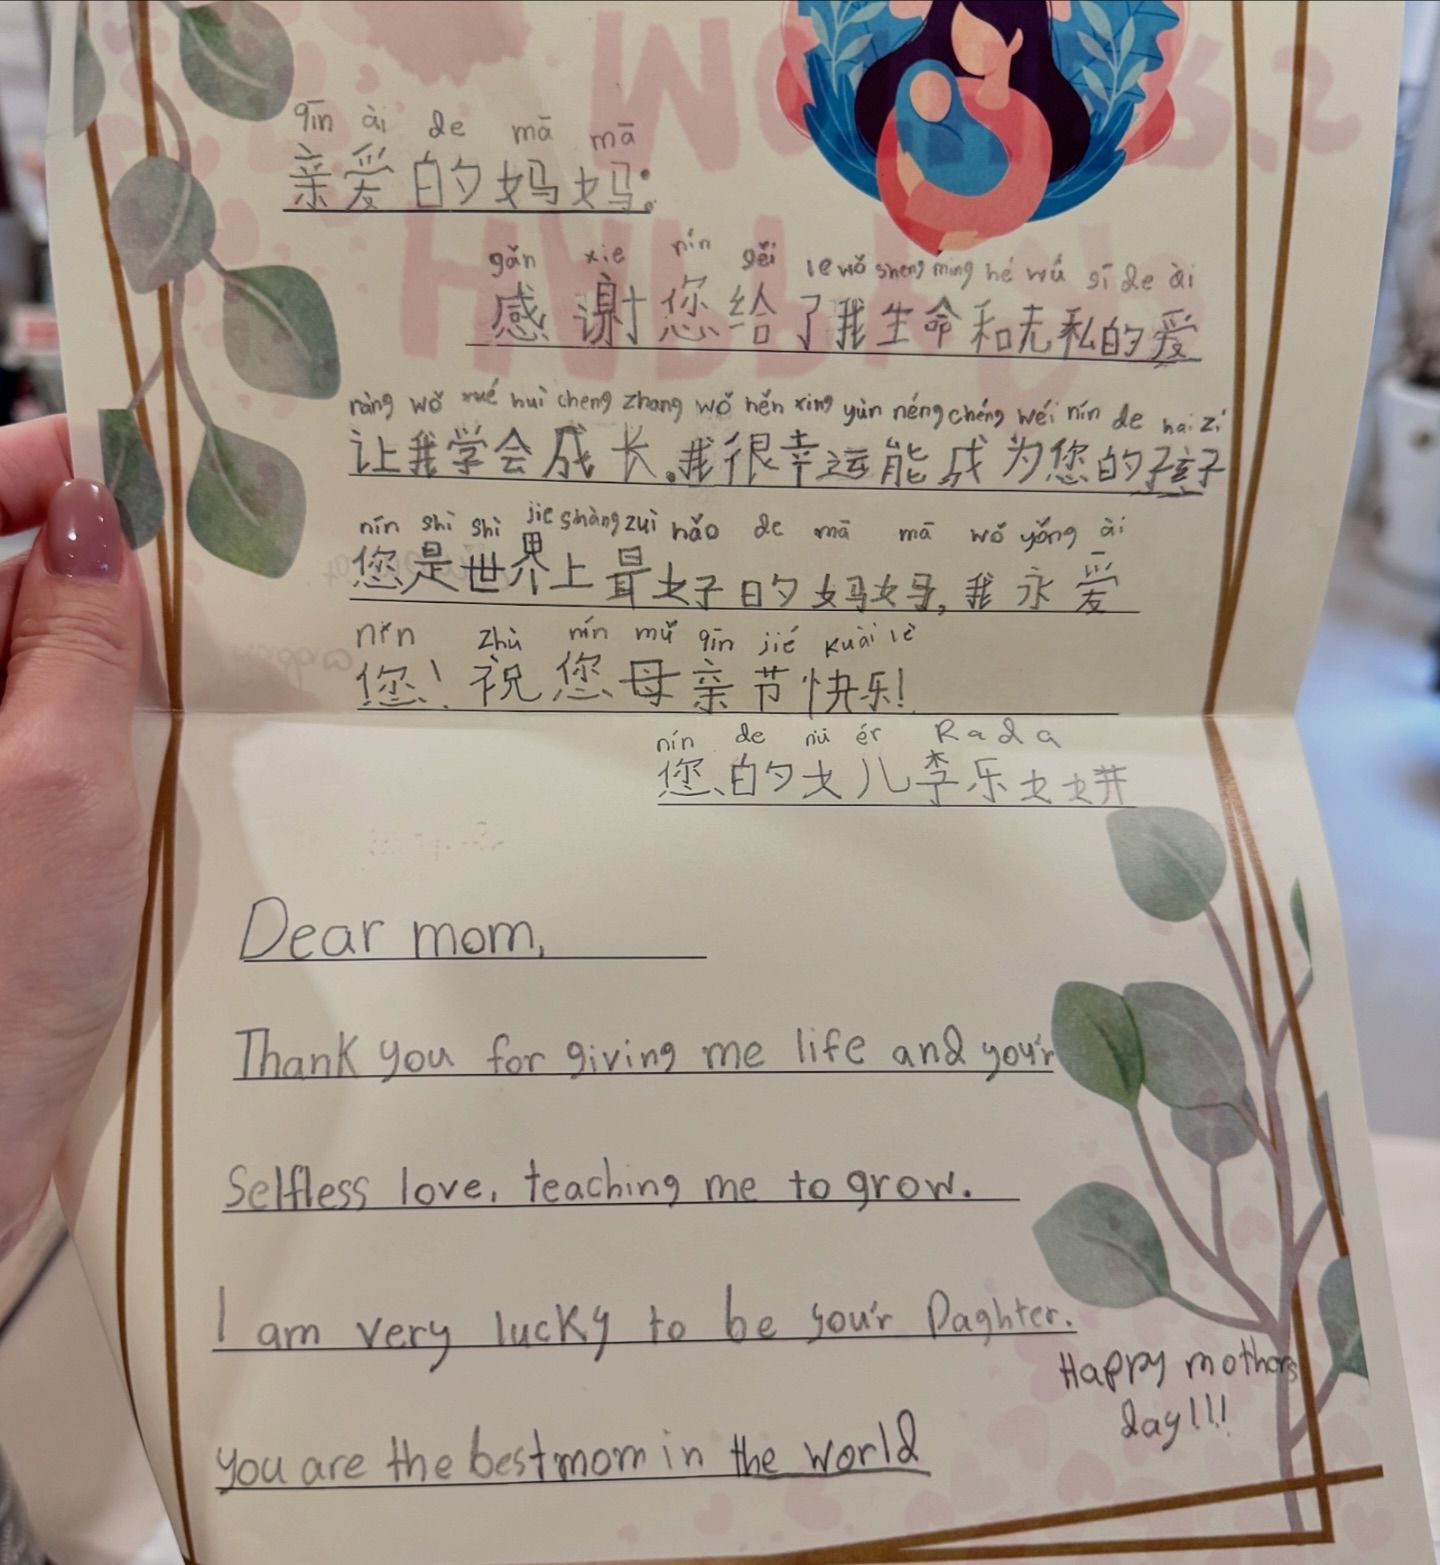 qīn ài de mā mā
亲爱的妈妈:
gǎn xie nín gěi le wǒ sheng ming hé wú sī de ài
感谢您给了我生命和无私的爱
ràng wǒ xué hui cheng zhang wǒ hěn xing yùn néng chéng wéi nín de hai zi
让我学会成长。我很幸运能成为您的孩子
nín shì shì jie shàng zuì hǎo de mā mā wǒ yǒng ài
您是世界上最好的妈妈,我永爱
nín zhù nín mǔ qīn jié kuài lè
您!祝您母亲节快乐!
nín de nü ér Rada
您的女儿李乐
Dear mom,
Thank you for giving me life and you'r
Selfless love, teaching me to grow.
I am very lucky to be you'r Daghter.
Happy mothers
day!!!
you are the best mom in the world